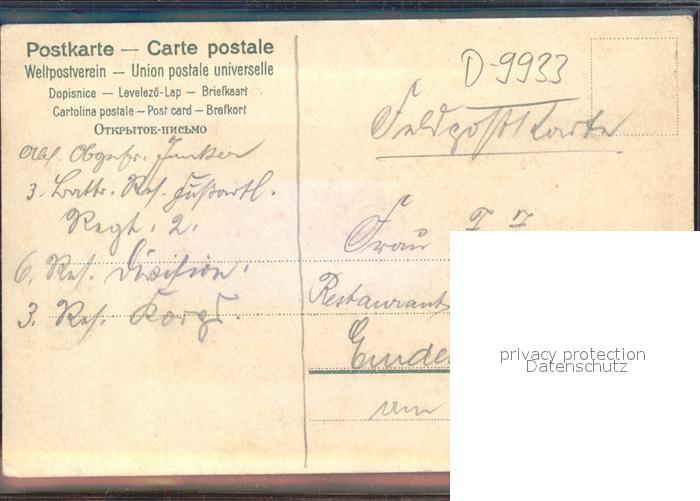 Postkarte — Carte postale
Weltpostverein — Union postale universelle
Dopisnice — Levelező-Lap — Briefkaart
Cartolina postale — Post card — Brefkort
Открытое-письмо
D-9933
Feldpostkarte
Abs. Obgefr. Junker
3. Battr. Res. Fußartl.
Regt. 2.
6. Res. Division.
3. Res. Korps.
Frau
Restaurant
am
privacy protection
Datenschutz